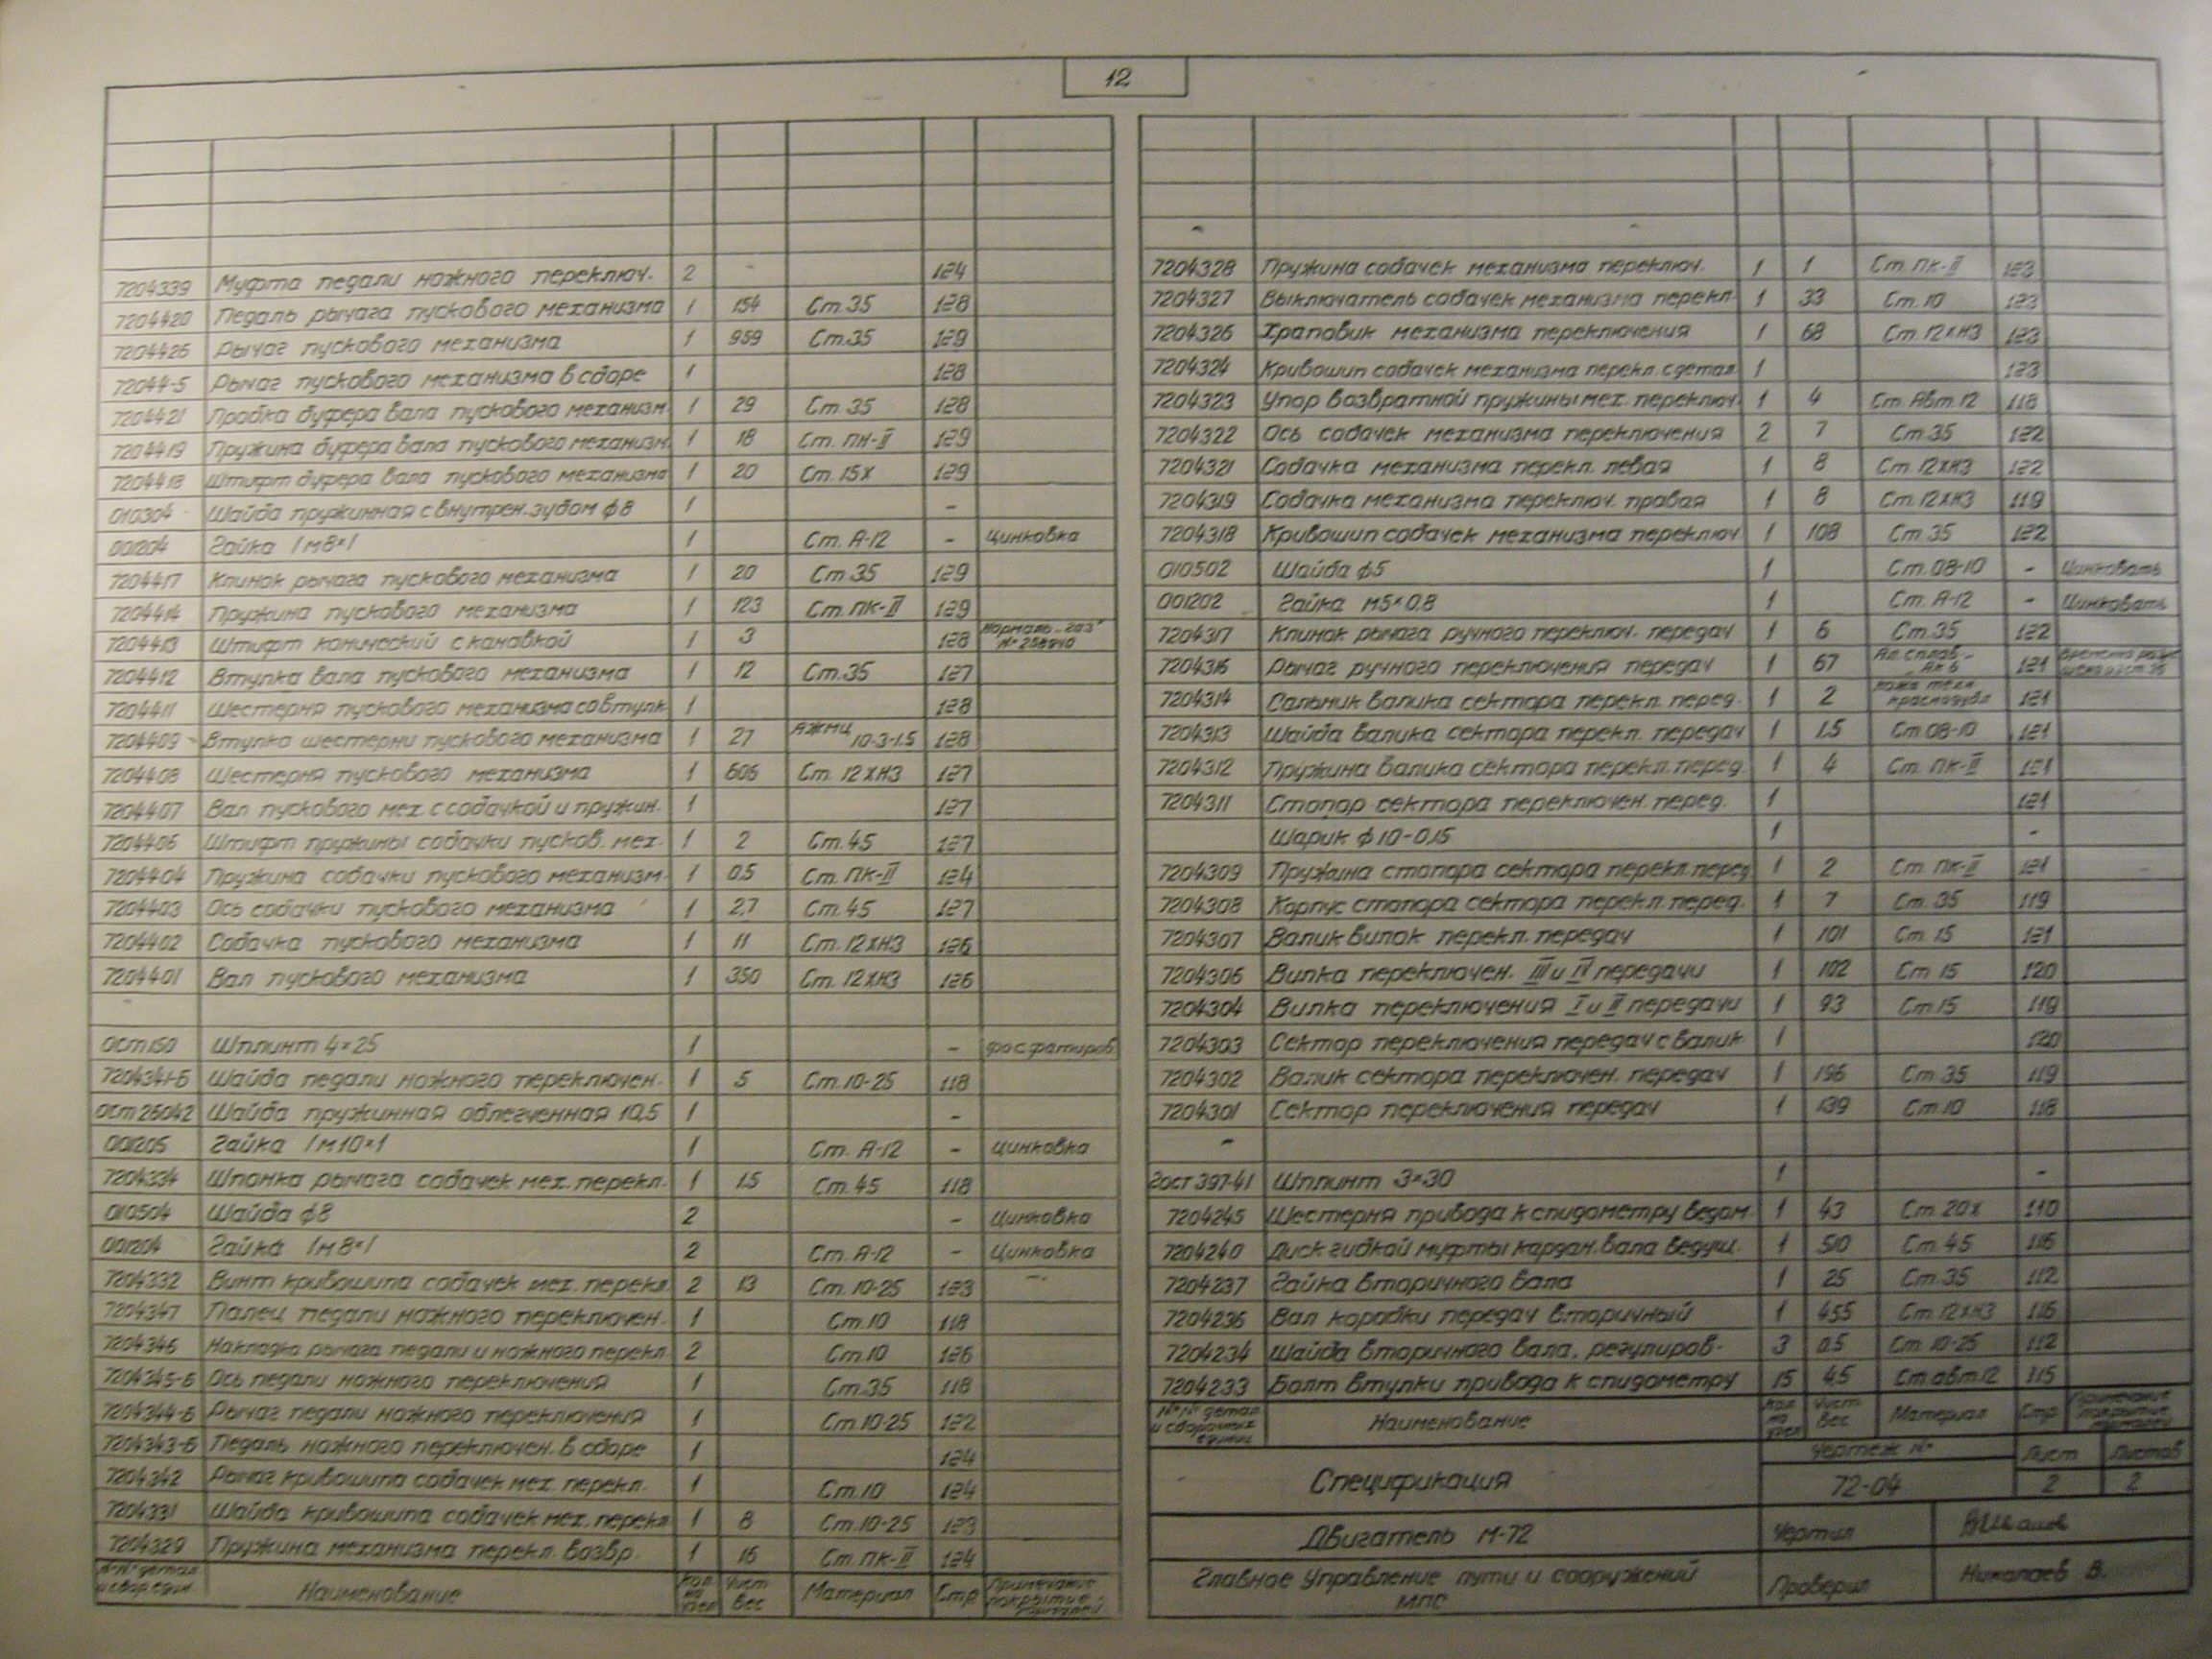 12
7204339 Муфта педали ножного переключ. 2 124
7204420 Педаль рычага пускового механизма 1 154 Ст.35 128
7204426 Рычаг пускового механизма 1 959 Ст.35 129
72044-5 Рычаг пускового механизма в сборе 1 128
7204421 Пробка буфера вала пускового механизм. 1 29 Ст.35 128
7204419 Пружина буфера вала пускового механизм. 1 18 Ст. ПК-II 129
7204418 Штифт буфера вала пускового механизма 1 20 Ст.15х 129
010304 Шайба пружинная с внутрен. зубом ф8 1 -
001204 Гайка 1м8×1 1 Ст. А-12 - Цинковка
7204417 Клинок рычага пускового механизма 1 20 Ст.35 129
7204414 Пружина пускового механизма 1 123 Ст. ПК-II 129
7204413 Штифт конический с канавкой 1 3 128 Нормаль „газ"
7204412 Втулка вала пускового механизма 1 12 Ст.35 127
7204411 Шестерня пускового механизма со втулк 1 128
7204409 Втулка шестерни пускового механизма 1 27 АЖМЦ 10-3-1.5 128
7204408 Шестерня пускового механизма 1 606 Ст. 12ХН3 127
7204407 Вал пускового мех. с собачкой и пружин. 1 127
7204406 Штифт пружины собачки пусков. мех. 1 2 Ст.45 127
7204404 Пружина собачки пускового механизм. 1 0.5 Ст. ПК-II 124
7204403 Ось собачки пускового механизма 1 2,7 Ст.45 127
7204402 Собачка пускового механизма 1 11 Ст.12ХН3 126
7204401 Вал пускового механизма 1 350 Ст. 12ХН3 126
ост150 Шплинт 4×25 1 - фосфатиров.
7204341-Б Шайба педали ножного переключен. 1 5 Ст.10-25 118
ост 25042 Шайба пружинная облегченная 10,5 1 -
001205 Гайка 1м10×1 1 Ст. А-12 - Цинковка
7204334 Шпонка рычага собачек мех. перекл. 1 1.5 Ст.45 118
010504 Шайба ф8 2 - Цинковка
001204 Гайка 1м8×1 2 Ст. А-12 - Цинковка
7204332 Винт кривошипа собачек мех. перекл 2 13 Ст.10-25 123
7204347 Палец педали ножного переключен. 1 Ст.10 118
7204346 Накладка рычага педали и ножного перекл 2 Ст.10 126
7204345-Б Ось педали ножного переключения 1 Ст.35 118
7204344-Б Рычаг педали ножного переключения 1 Ст.10-25 122
7204343-Б Педаль ножного переключен. в сборе 1 124
7204342 Рычаг кривошипа собачек мех. перекл. 1 Ст.10 124
7204331 Шайба кривошипа собачек мех. перекл 1 8 Ст.10-25 123
7204329 Пружина механизма перекл. возвр. 1 16 Ст ПК-II 124
№№ детал. и сбор. един. Наименование Кол на узел Чист вес Материал Стр Примечание покрытие деталей
7204328 Пружина собачек механизма переключ. 1 1 Ст. ПК-II 123
7204327 Выключатель собачек механизма перекл. 1 33 Ст. 10 123
7204326 Храповик механизма переключения 1 68 Ст. 12ХН3 123
7204324 Кривошип собачек механизма перекл. с детал 1 123
7204323 Упор возвратной пружины мех. переключ. 1 4 Ст. Авт. 12 118
7204322 Ось собачек механизма переключения 2 7 Ст.35 122
7204321 Собачка механизма перекл. левая 1 8 Ст 12ХН3 122
7204319 Собачка механизма переключ. правая 1 8 Ст.12ХН3 119
7204318 Кривошип собачек механизма переключ 1 108 Ст.35 122
010502 Шайба ф5 1 Ст.08-10 - Цинковать
001202 Гайка м5×0.8 1 Ст. А-12 - Цинковать
7204317 Клинок рычага ручного переключ. передач 1 6 Ст.35 122
7204316 Рычаг ручного переключения передач 1 67 Ал. сплав. 121
7204314 Сальник валика сектора перекл. перед. 1 2 кожа техн 121
7204313 Шайба валика сектора перекл. передач 1 1.5 Ст 08-10 121
7204312 Пружина валика сектора перекл. перед. 1 4 Ст. ПК-II 121
7204311 Стопор сектора переключен. перед. 1 121
Шарик ф 10-0.15 1 -
7204309 Пружина стопора сектора перекл. перед. 1 2 Ст. ПК-II 121
7204308 Корпус стопора сектора перекл. перед. 1 7 Ст. 35 119
7204307 Валик вилок перекл. передач 1 101 Ст. 15 121
7204306 Вилка переключен. III и IV передачи 1 102 Ст 15 120
7204304 Вилка переключения I и II передачи 1 93 Ст 15 119
7204303 Сектор переключения передач с валик. 1 120
7204302 Валик сектора переключен. передач 1 196 Ст.35 119
7204301 Сектор переключения передач 1 139 Ст.10 118
Гост 397-41 Шплинт 3×30 1 -
7204245 Шестерня привода к спидометру ведом. 1 43 Ст.20х 110
7204240 Диск гибкой муфты кардан. вала ведущ. 1 510 Ст.45 116
7204237 Гайка вторичного вала 1 25 Ст.35 112
7204236 Вал коробки передач вторичный 1 455 Ст 12ХН3 116
7204234 Шайба вторичного вала, регулиров. 3 0.5 Ст. 10-25 112
7204233 Болт втулки привода к спидометру 15 4.5 Ст. авт.12 115
№№ детал и сборочных единиц Наименование Кол на узел Чист. вес Материал Стр Примечание покрытие деталей
Спецификация Чертеж № 72-04 Лист 2 Листов 2
Двигатель М-72 Чертил
Главное Управление пути и сооружений МПС Проверил Николаев В.